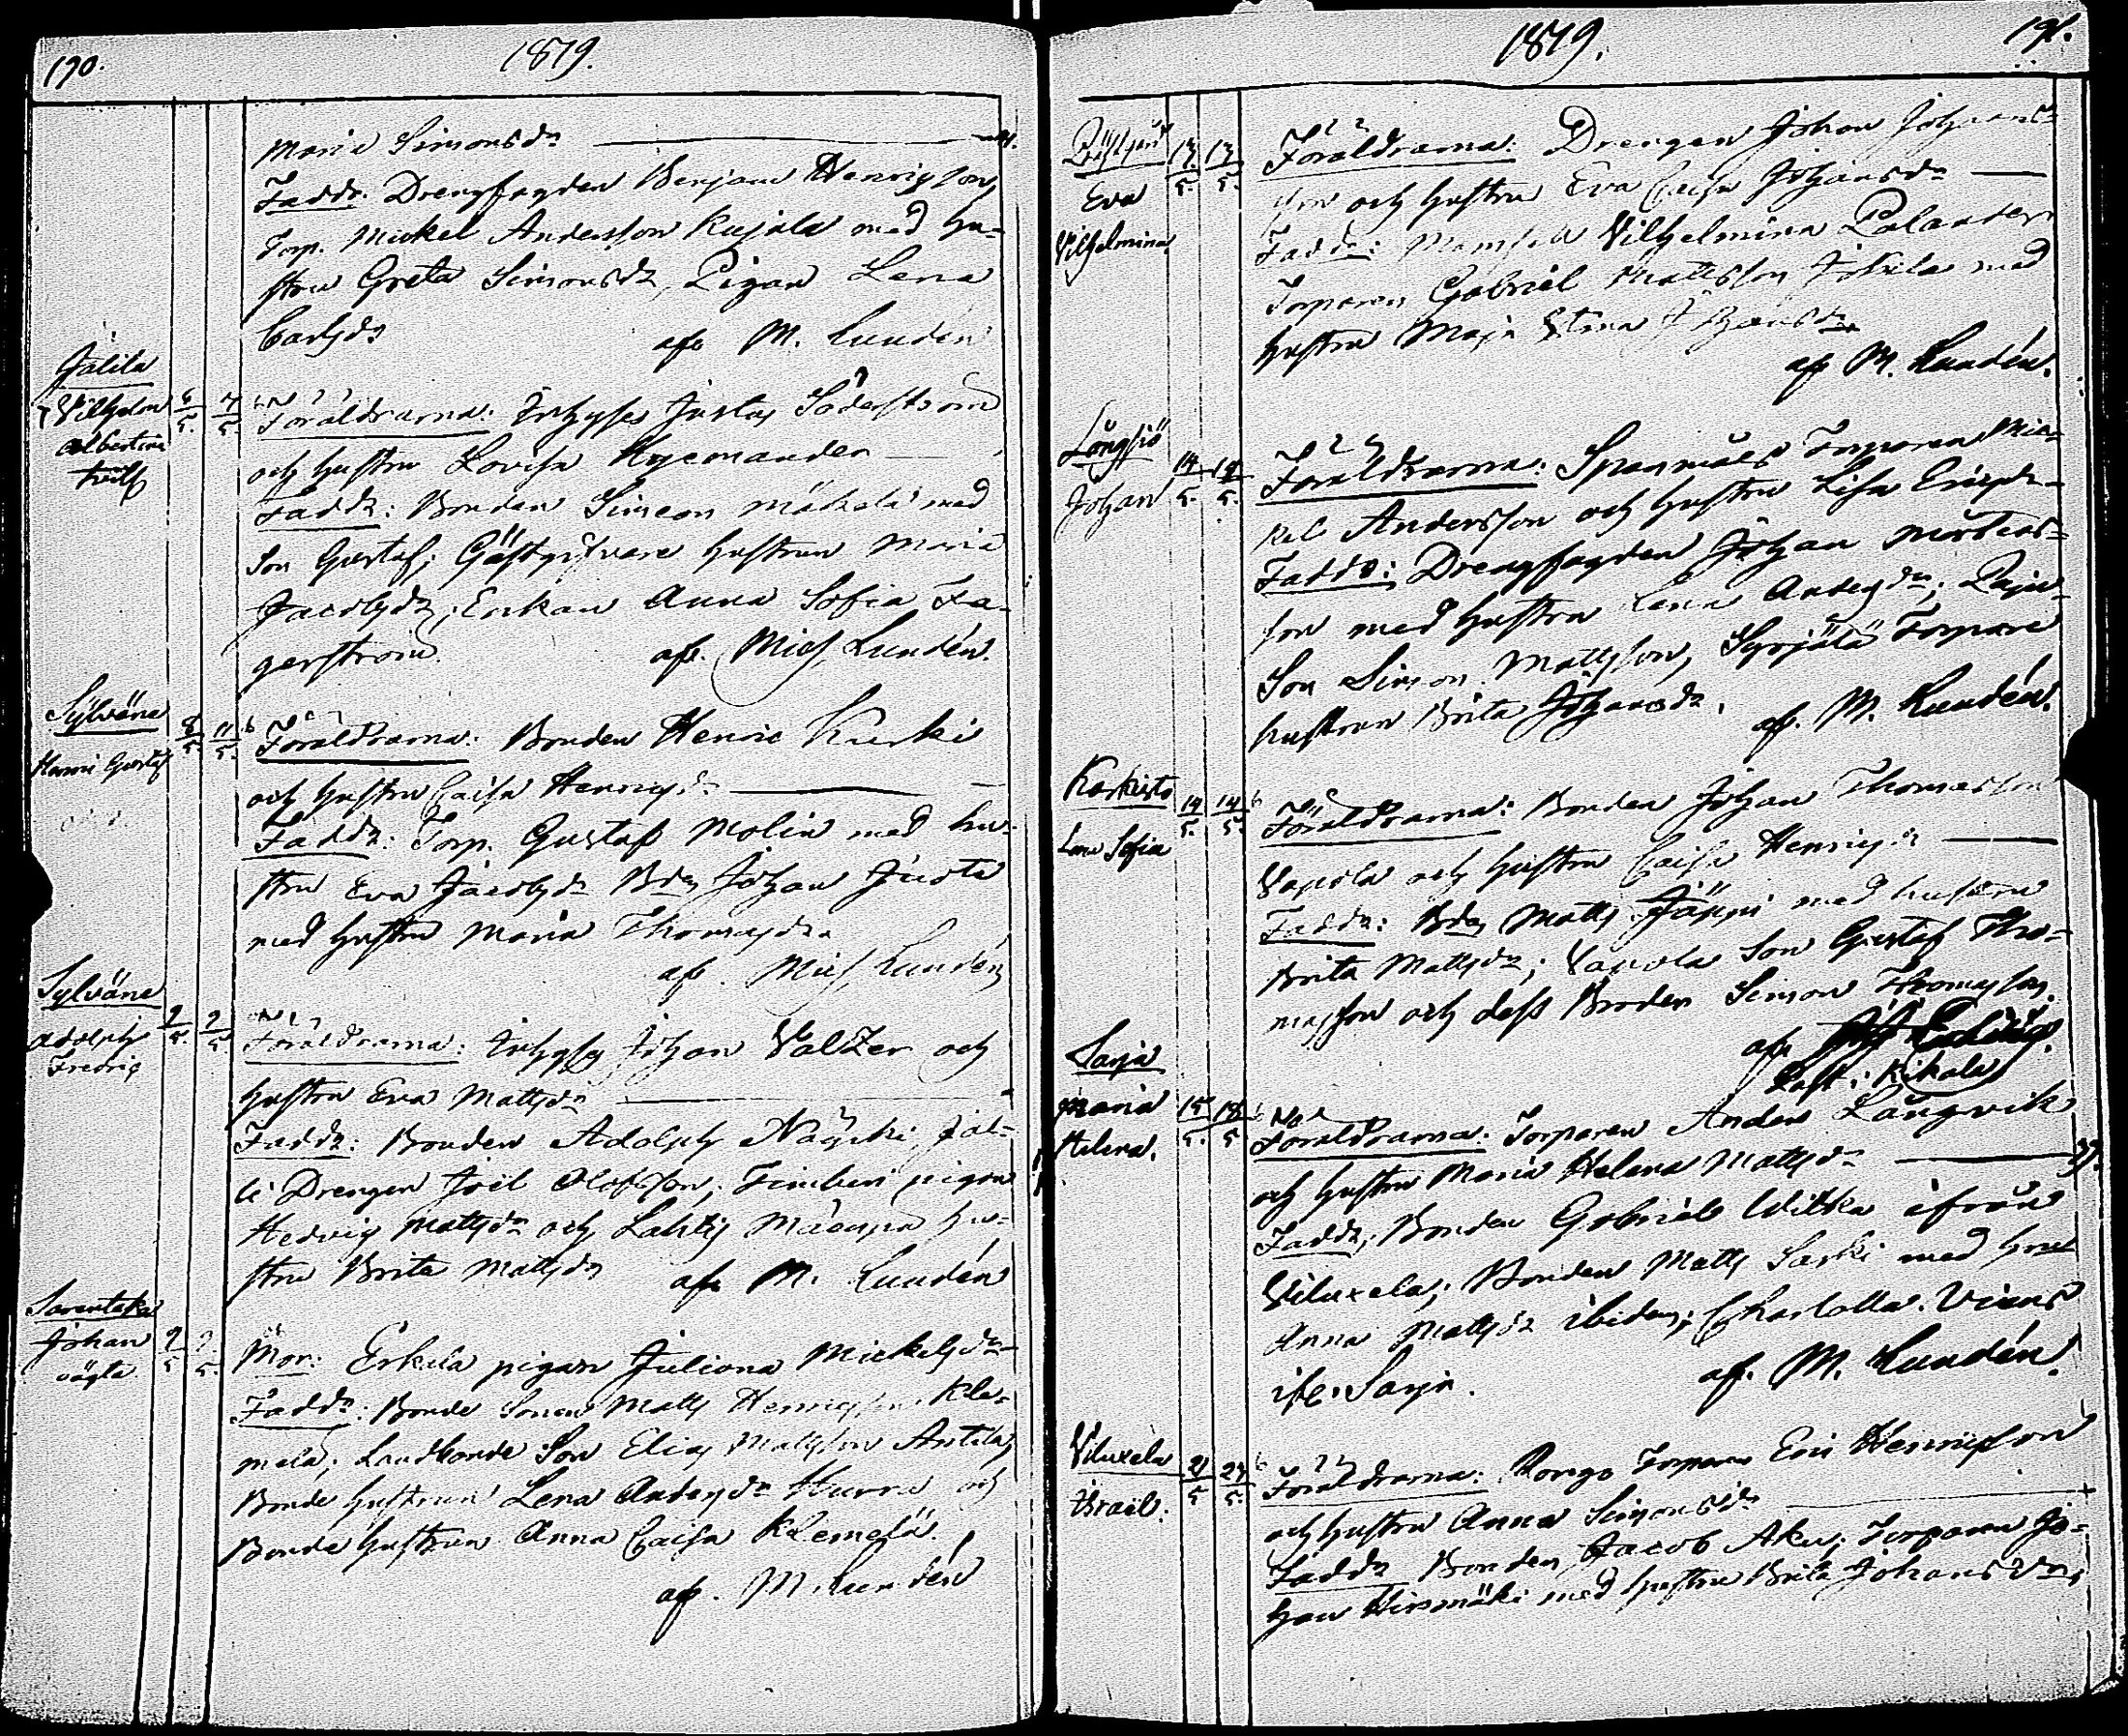 190.
1819.
Maria Simonsdr
Faddr. Drengfogden Benjam Henrigsson,
Torp. Mickel Andersson Kujala med hu-
stru Greta Simonsdr, Pigan Lena
Carlsdr
af M. Lundén
Jälilä
Vilhelm
Albertina
6/5. 7/5.
Föräldrarna: Inhyses Justus Söderström
och hustru Lovisa Nycmander
Faddr: Bonden Simeon Mäkelä med
Son Gustaf; Gästgifvare hustrun Maria
Jacobsdr; Enkan Anna Sofia Fa-
gerström.
af. Mich. Lundén.
Sylväne
Henric Gustaf
8/5. 11/5.
Föräldrarna: Bonden Henric Kurki
och hustru Caisa Henrigsdr
Faddr: Torp. Gustaf Molin med hu-
stru Eva Jacobsdr Bdn Johan Juvola
med hustru Maria Thomasdr
af. Mich. Lundén
Sylväne
Adolph
Fredric
9/5. 9/5.
Föräldrarna: Inhyses Johan Valzer och
hustru Eva Mattsdr
Faddr: Bonden Adolph Näyhi, Jäl-
li Drengen Joel Olofsson, pigan
Hedvig Mattsdr och hu-
stru Brita Mattsdr
af M. Lundén
Sarentaka
Johan
oägta
9/5 9/5.
Mor: Erkilä pigan Juliana Mickelsdr
Faddr: Bonde Sonen Matts Henrigsson Kle-
melä; Landbonde Son Elias Mattsson Antila,
Bonde hustrun Lena Andersdr Hurra och
Bonde hustrun Anna Caisa Klemelä.
af. M. Lundén
1819.
191.
Eva
Vilhelmina
13/5. 13/5.
Föräldrarna: Drengen Johan Johans-
son och hustru Eva Caisa Johansdr
Faddr: Mamsell Vilhelmina Polander
Torparen Gabriel Mattsson Jokila med
hustru Maja Stina Johansdr
af M. Lundén.
Långsjö
Johan
14/5. 14/5.
Föräldrarna: Spanmåls Torparen Mic-
kel Andersson och hustru Lisa Ericsdr
Faddr: Drengfogden Johan Mårtens-
son med hustru Lena Andersdr;
Son Simon Mattsson, Syrjälä Torpare
hustrun Brita Johansdr.
af. M. Lundén.
Karkisto
Lena Sofia
14/5. 14/5.
Föräldrarna: Bonden Johan Thomasson
Vapola och hustru Caisa Henrigsdr
Faddr: Bdn Matts Jäppi med hustru
Brita Mattsdr; Vapola Son Gustaf Tho-
masson och dess Broder Simon Thomasson.
af
Past. i Kikala
Sarja
Maria
Helena.
15/5. 18/5
Föräldrarna: Torparen Anders Långvik
och hustru Maria Helena Mattsdr
Faddr, Bonden Gabriel Uitka ifrån
Viluxela; Bonden Matts Sarki med hust
Anna Mattsdr ibidem; Charlotta
ifr. Sarja.
af. M. Lundén.
Viluxela
Israel.
21/5 24/5.
Föräldrarna: Rongo Torparen Eric Henricsson
och hustru Anna Simonsdr
Faddr Bonden Jacob Aku, Torparen Jo-
han Hirsmäki med hustru Brita Johansdr,